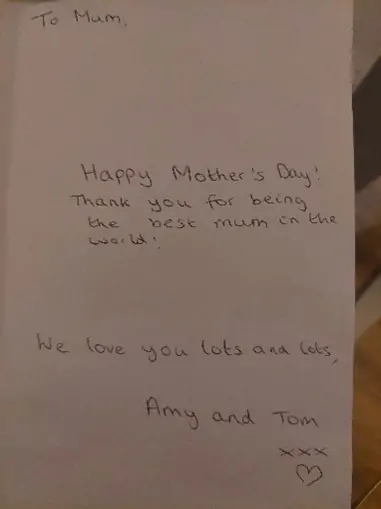 To Mum,
Happy Mother's Day!
Thank you for being
the best mum in the
world!
We love you lots and lots,
Amy and Tom
xxx
♡